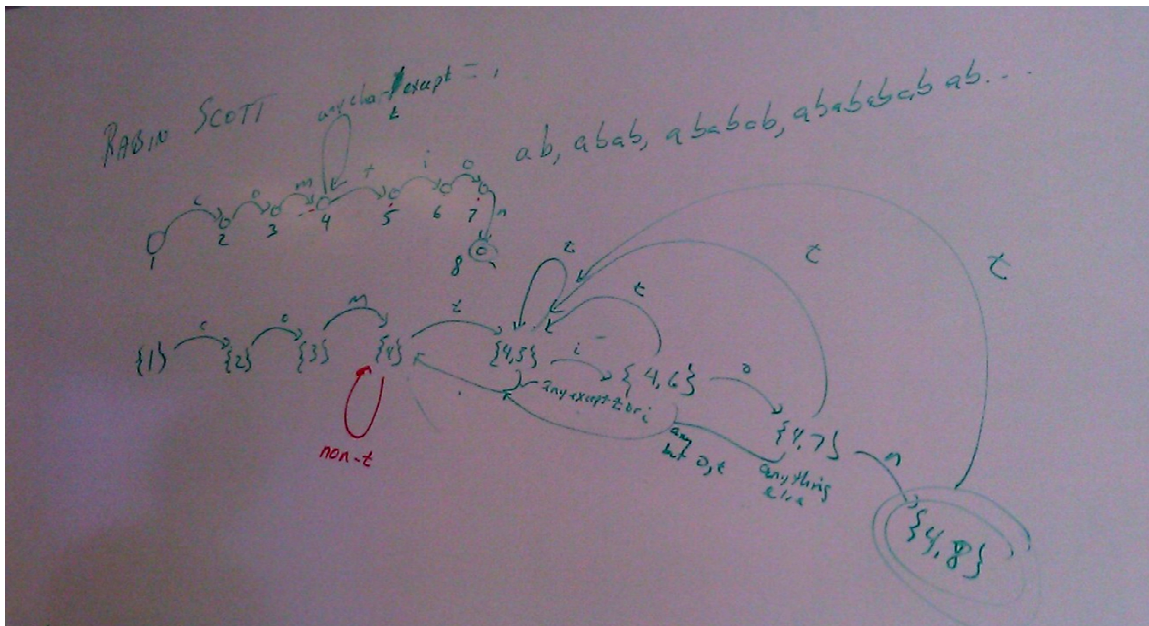 RABIN SCOTT
any char except = ,
t
ab, abab, ababab, abababab ab...
c o m t i o n
1 2 3 4 5 6 7
8
c o m t t t t t
{1} {2} {3} {4} {4,5} i {4,6} o {4,7} n {4,8}
any except t or i
any but o,t
anything else
non-t